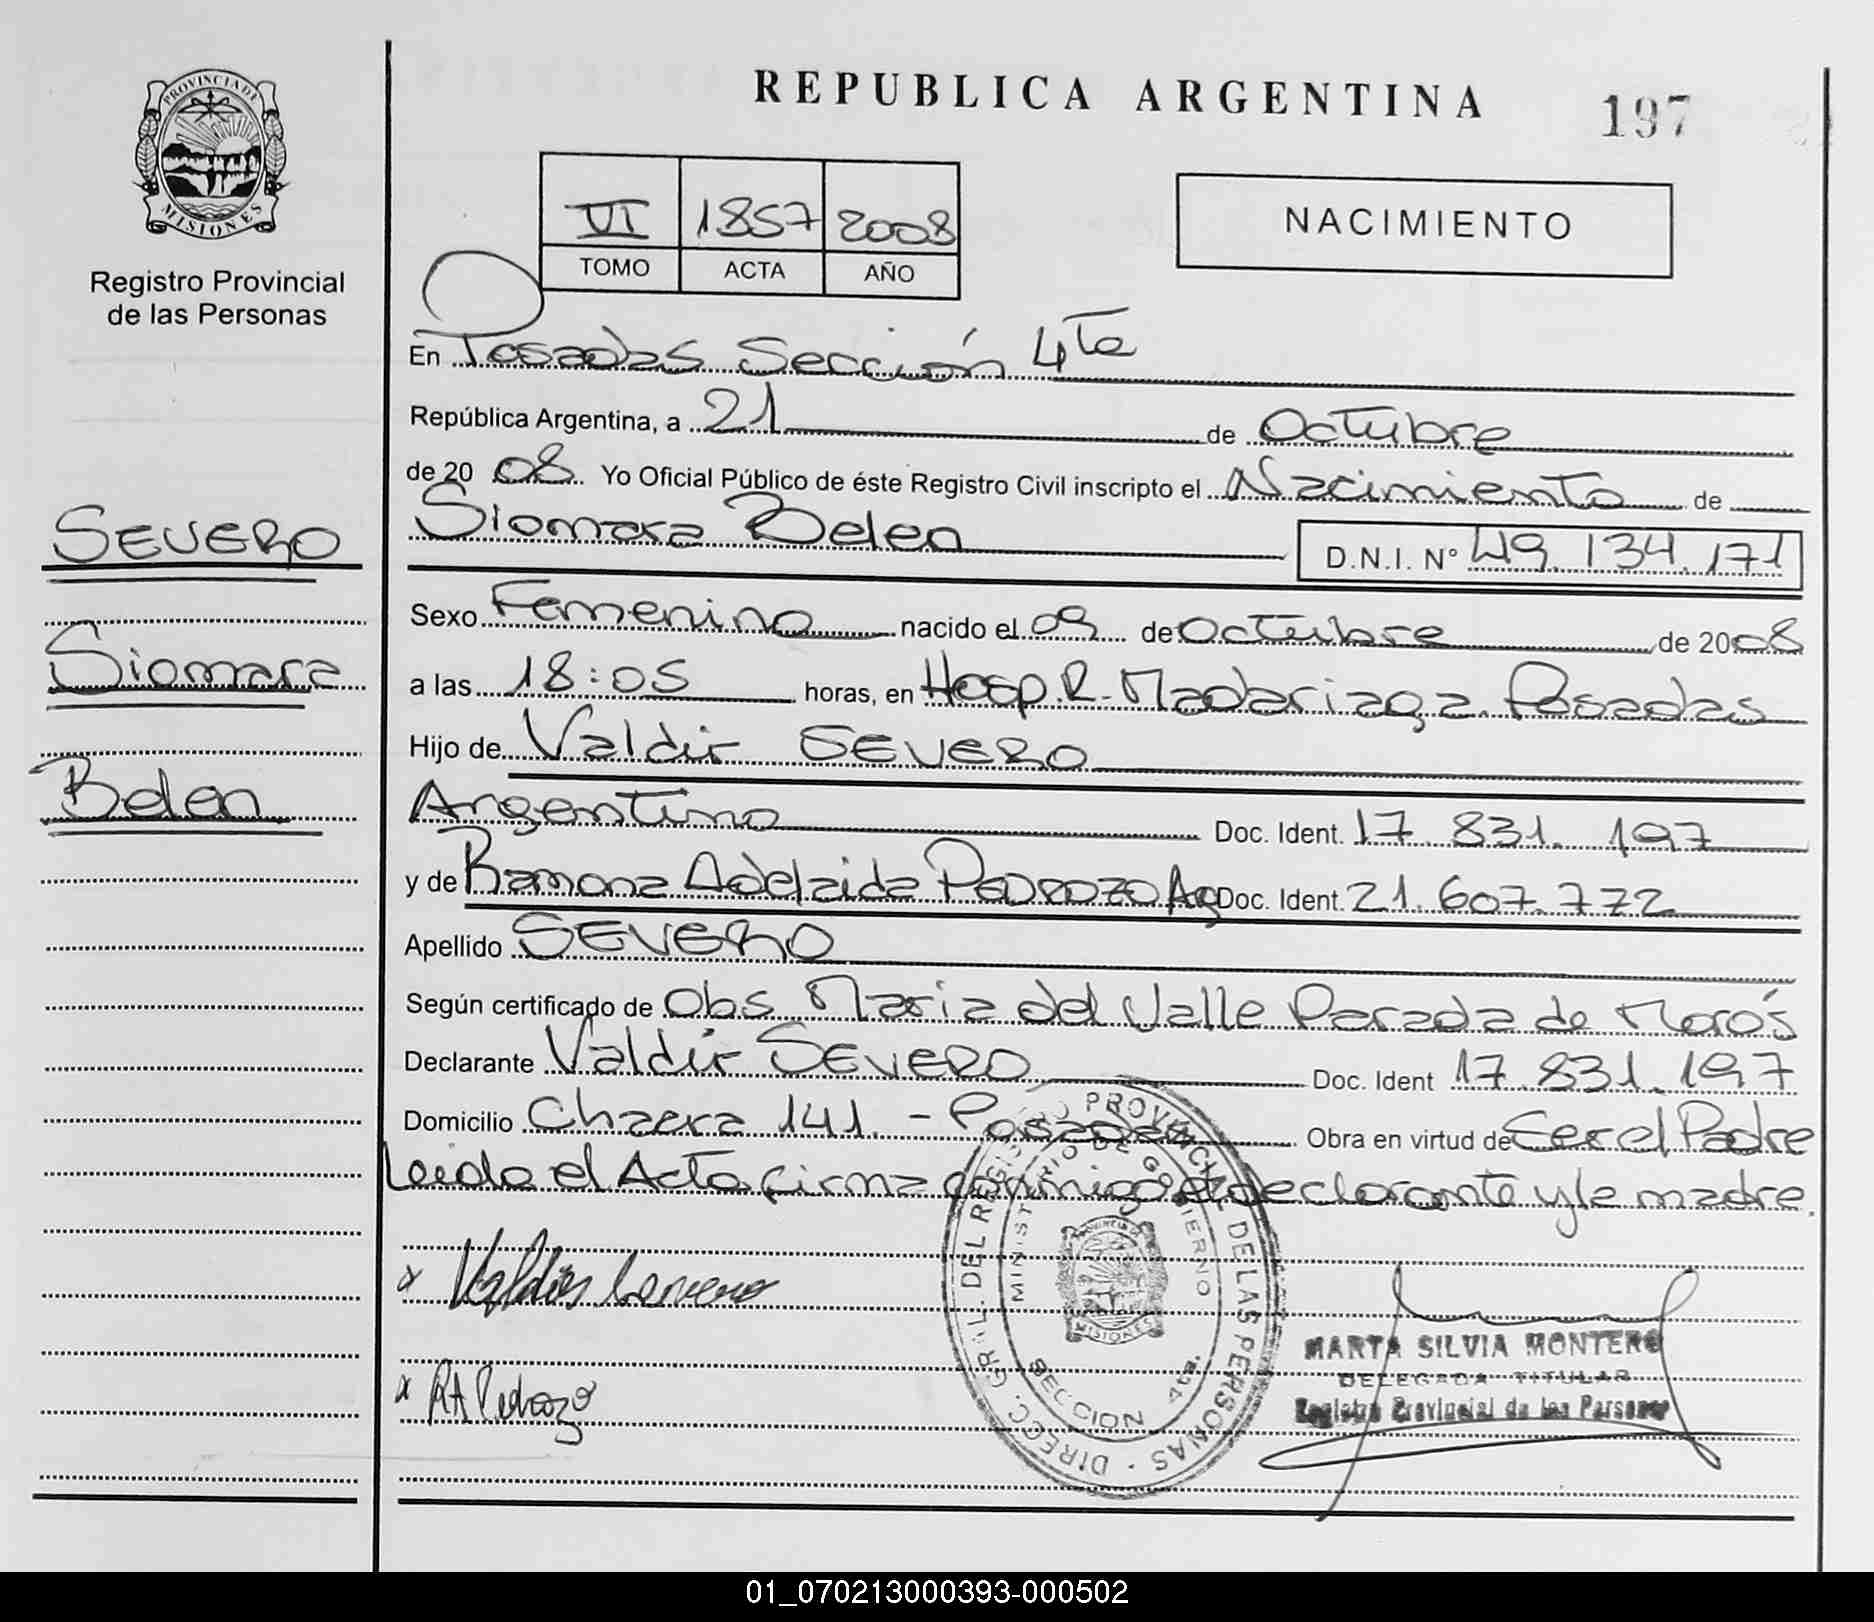 REPUBLICA ARGENTINA
197
PROVINCIA DE
MISIONES
Registro Provincial
de las Personas
VI 1857 2008
TOMO ACTA AÑO
NACIMIENTO
En Posadas Sección 4ta
República Argentina, a 21 de Octubre
de 2008 Yo Oficial Público de éste Registro Civil inscripto el Nacimiento de
Siomara Belen D.N.I. N° 49.134.171
SEVERO
Siomara
Belen
Sexo Femenino nacido el 09 de Octubre de 2008
a las 18:05 horas, en Hosp. R. Madariaga. Posadas
Hijo de Valdir SEVERO
Argentino Doc. Ident. 17.831.197
y de Ramona Adelaida PEDROZO Arg Doc. Ident. 21.607.772
Apellido SEVERO
Según certificado de Obs Maria del Valle Parada de Morós
Declarante Valdir SEVERO Doc. Ident 17.831.197
Domicilio Chacra 141. - Posadas Obra en virtud de Ser el Padre
Leida el Acta firma conmigo el declarante y la madre.
x
x RA Pedrozo
DIRECC. GRAL. DEL REGISTRO PROVINCIAL DE LAS PERSONAS
MINISTERIO DE GOBIERNO
MISIONES
SECCION 4ta.
MARTA SILVIA MONTERO
DELEGADA TITULAR
Registro Provincial de las Personas
01_070213000393-000502